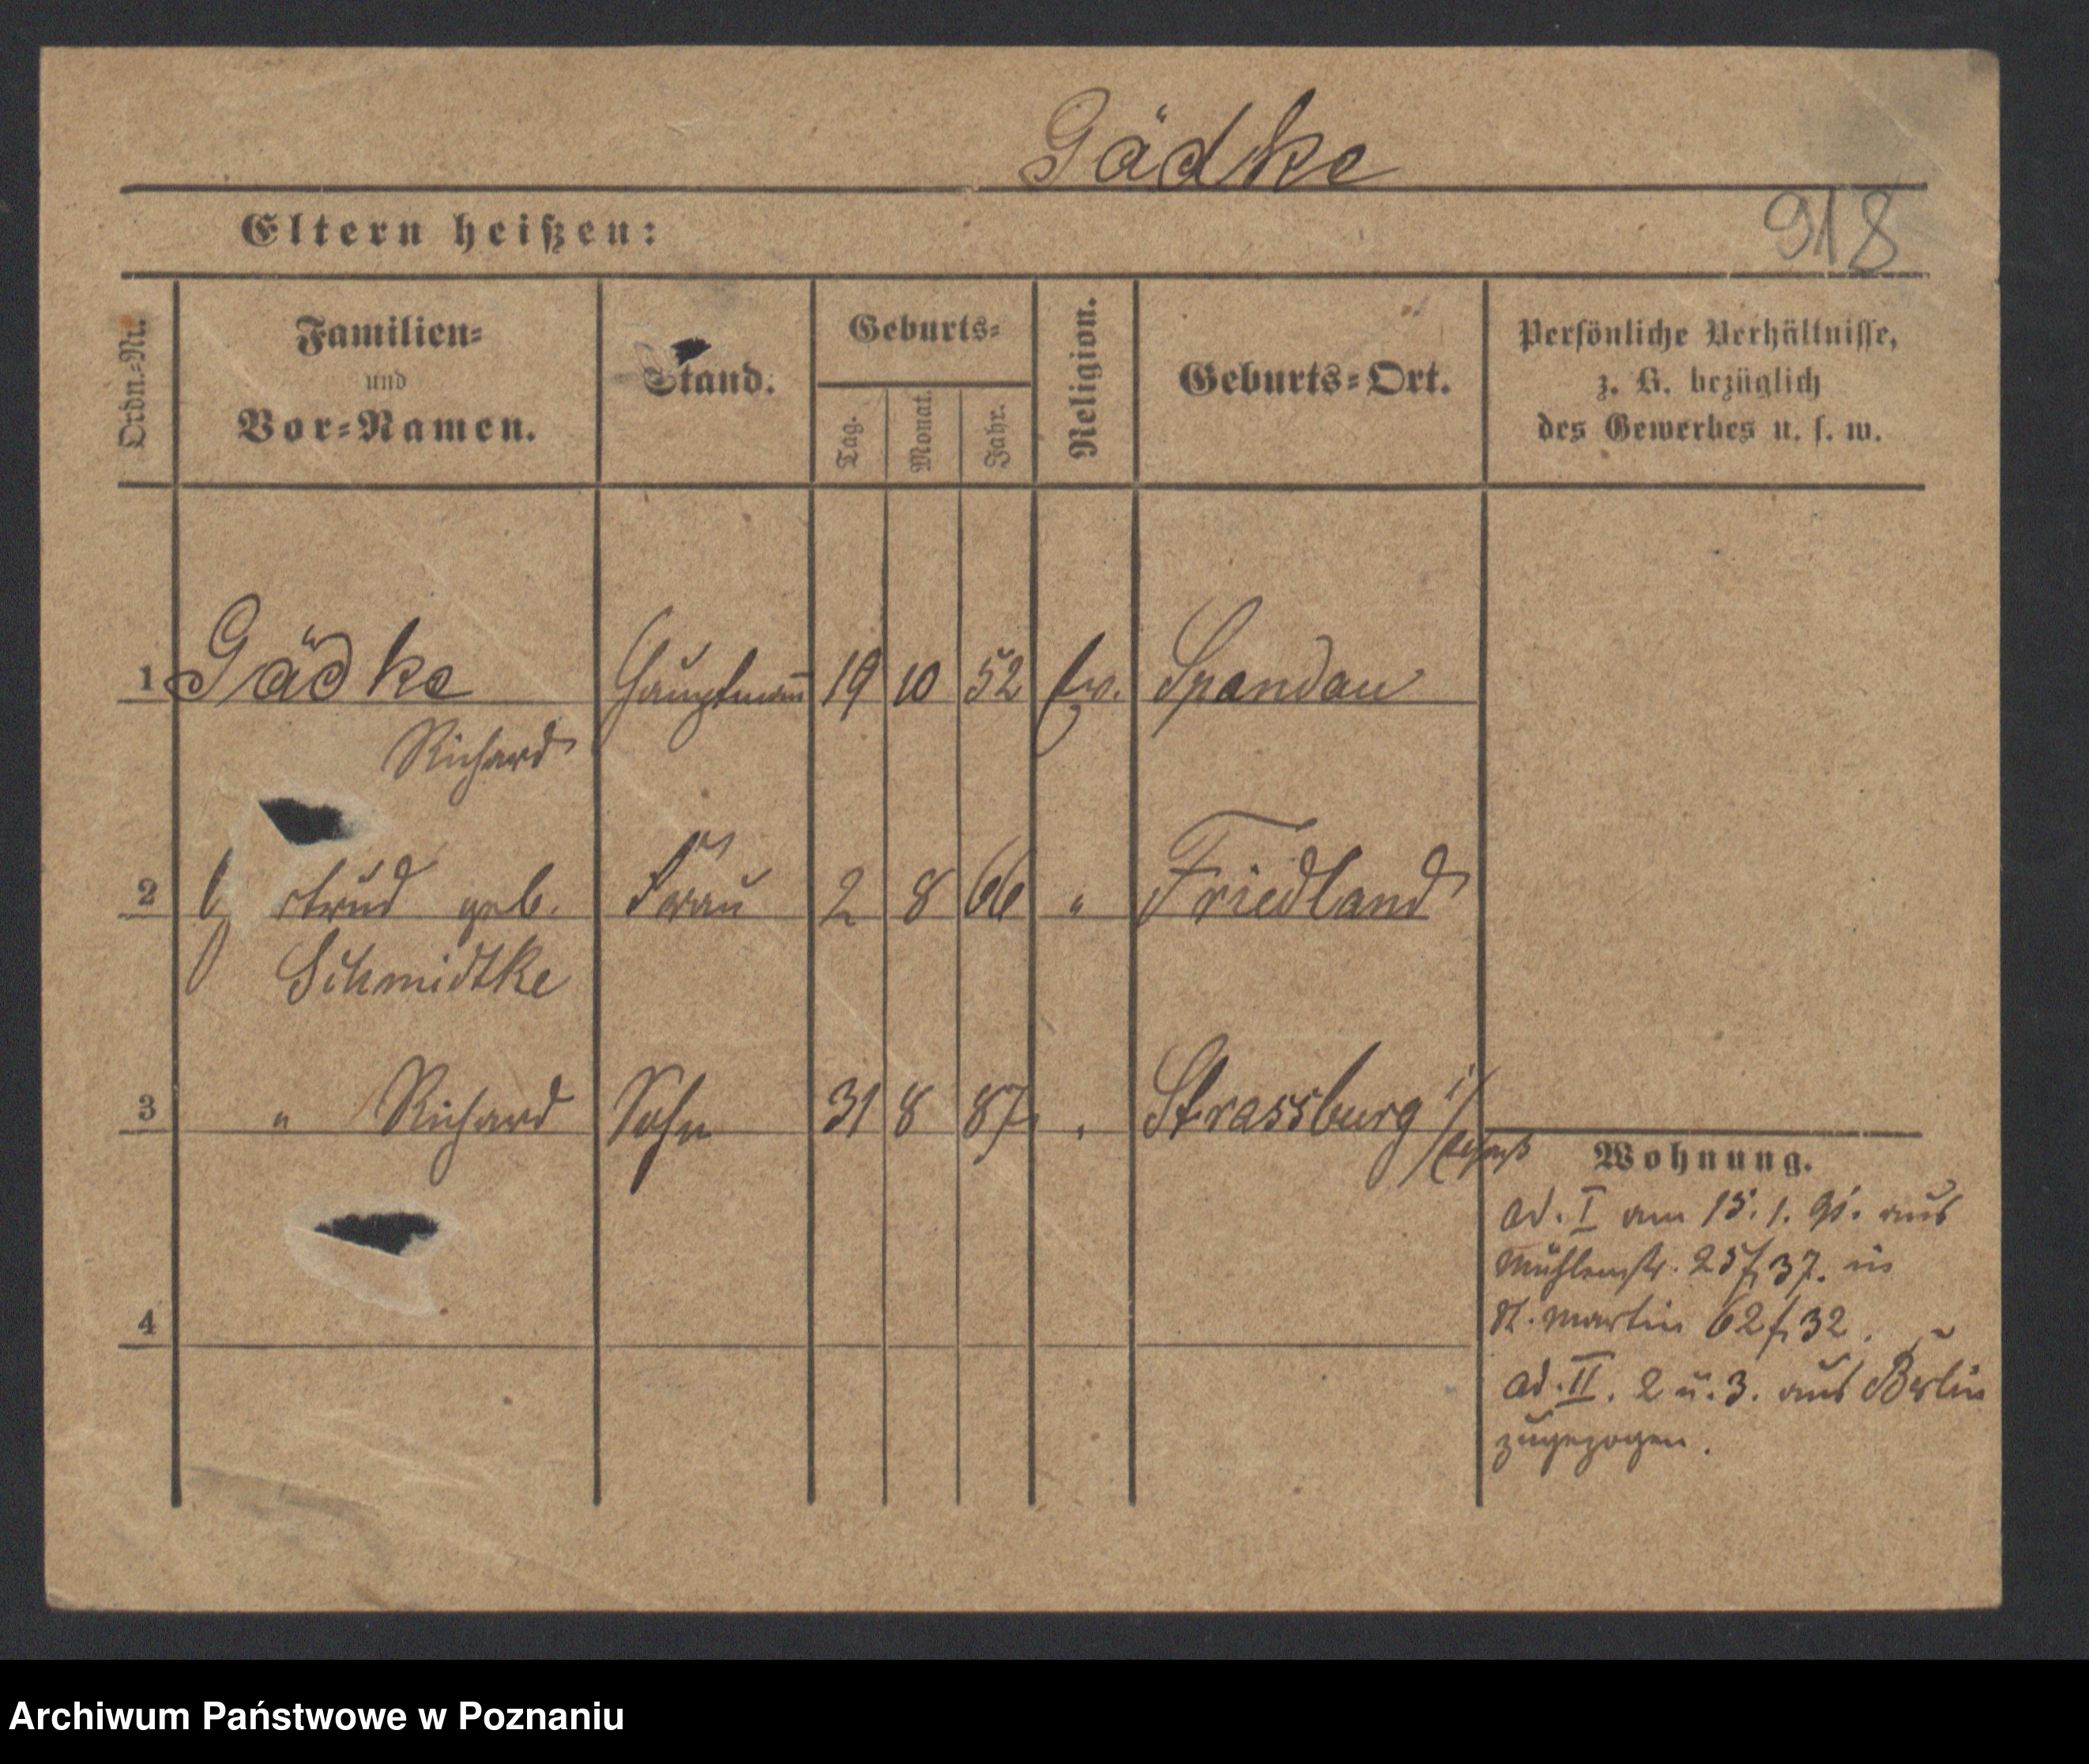 Gädke
Eltern heißen:
918
Ordn.-Nr.
Familien-
und
Vor-Namen.
Stand.
Geburts-
Tag.
Monat.
Jahr.
Religion.
Geburts-Ort.
Persönliche Verhältnisse,
z. B. bezüglich
des Gewerbes u. s. w.
1 Gädke Hauptmann 19 10 52 Ev. Spandau
Richard
2 rtrud geb. Frau 2 8 66 " Friedland
Schmidtke
3 " Richard Sohn 31 8 87 " Strassburg i/
Elsaß
4
Wohnung.
ad. I am 15. 1. 91. aus
Mühlenstr. 25/37. in
St. Martin 62/32.
ad. II. 2 u. 3. aus Berlin
zugezogen.
Archiwum Państwowe w Poznaniu